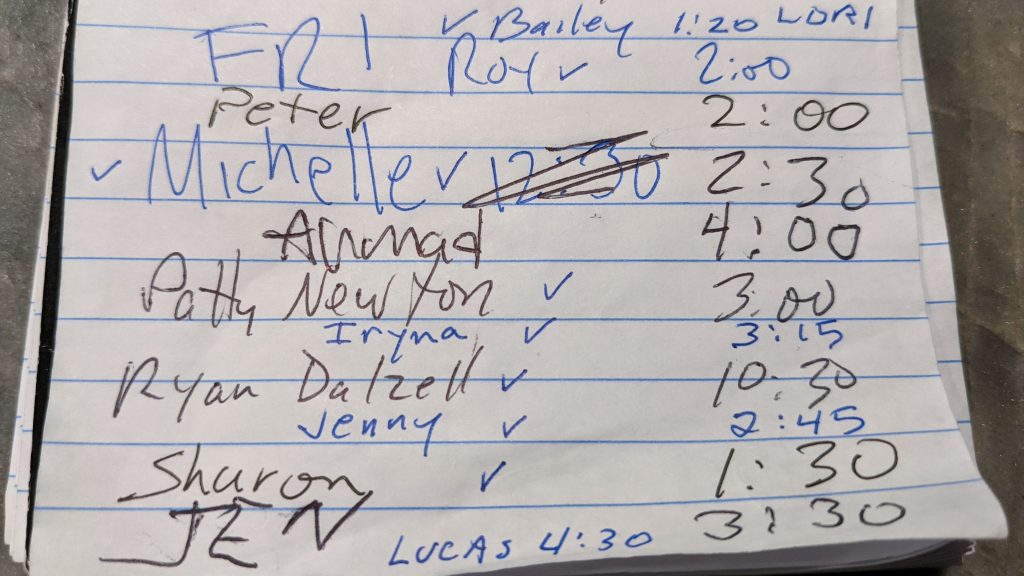 ✓ Bailey 1:20 LORI
FRI Roy ✓ 2:00
Peter 2:00
✓ Michelle ✓ 12:30 2:30
Ahmad 4:00
Patty Newton ✓ 3:00
Iryna ✓ 3:15
Ryan Dalzell ✓ 10:30
Jenny ✓ 2:45
Sharon ✓ 1:30
JEN 3:30
LUCAS 4:30